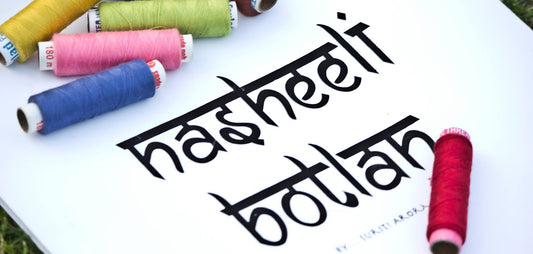 nasheeli
botlan
BY ARORA
180 m